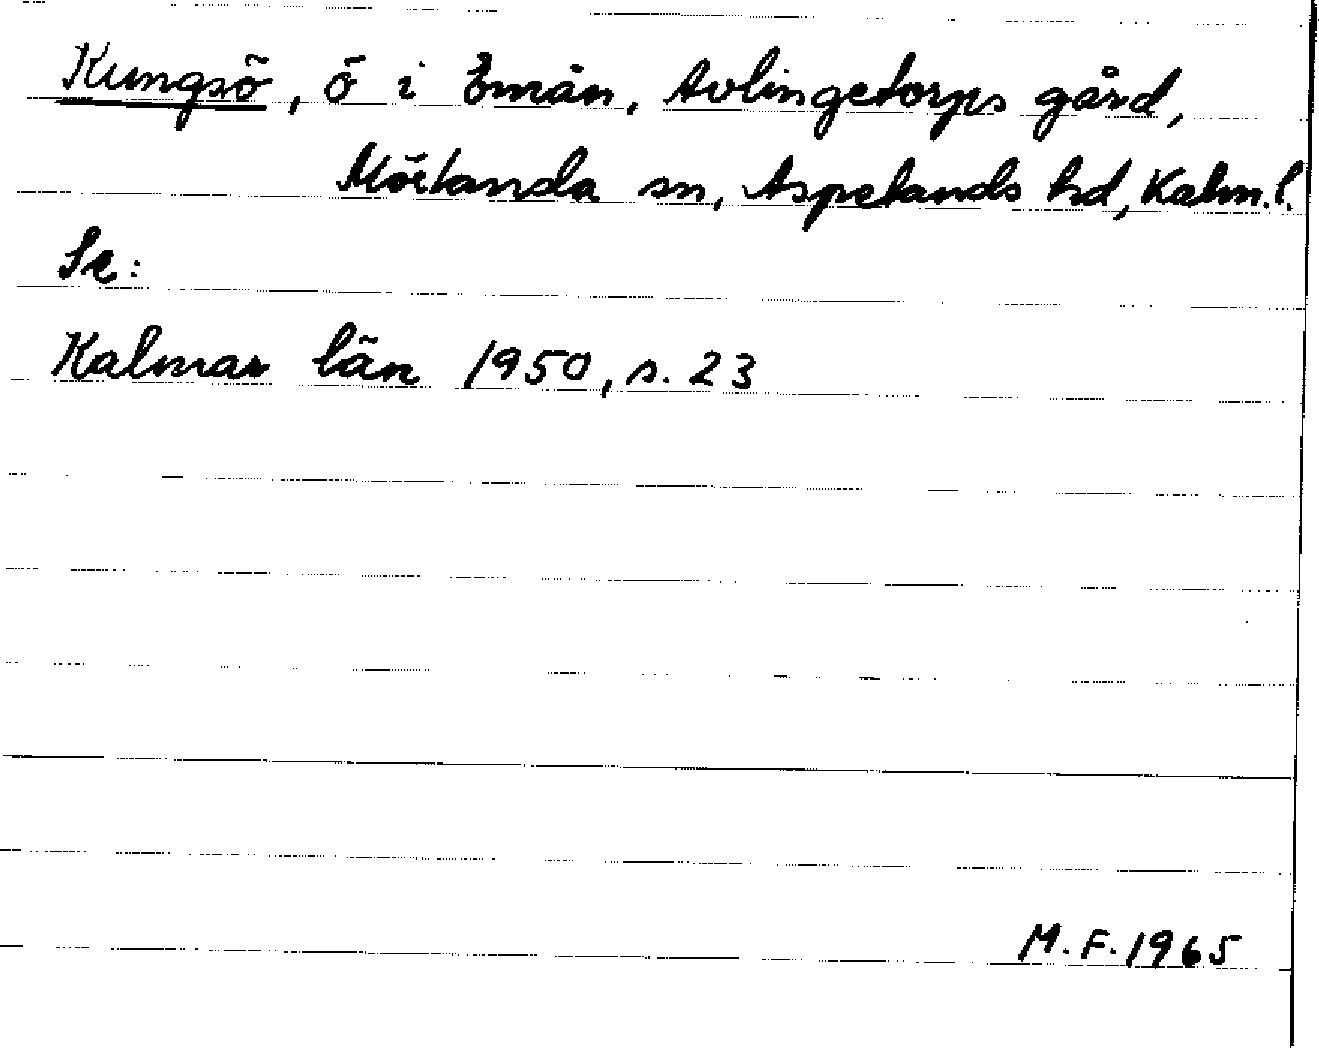 Kungsö, ö i Emån, Avlingetorps gård,
Mörlunda sn, Aspelands hd, Kalm.l.
Se:
Kalmar län 1950, s. 23
M.F. 1965